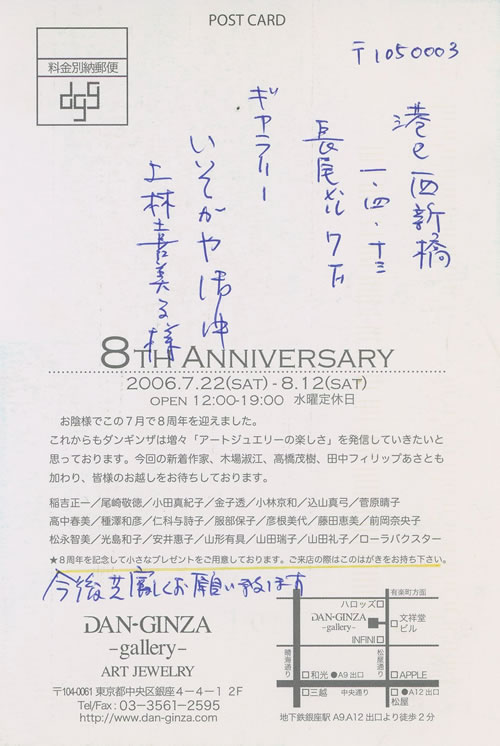 POST CARD
料金別納郵便
dgg
〒1050003
港区西新橋
一・四・十三
長尾ビル7F
ギャラリー
いそがや
上林喜美子様
8TH ANNIVERSARY
2006.7.22(SAT) - 8.12(SAT)
OPEN 12:00-19:00 水曜定休日
お陰様でこの7月で8周年を迎えました。
これからもダンギンザは増々「アートジュエリーの楽しさ」を発信していきたいと
思っております。今回の新着作家、木場淑江、高橋茂樹、田中フィリップあさとも
加わり、皆様のお越しをお待ちしております。
稲吉正一／尾崎敬徳／小田真紀子／金子透／小林京和／込山真弓／菅原晴子
高中春美／種澤和彦／仁科与詩子／服部保子／彦根美代／藤田恵美／前岡奈央子
松永智美／光島和子／安井惠子／山形有具／山田瑞子／山田礼子／ローラバクスター
★8周年を記念して小さなプレゼントをご用意しております。ご来店の際はこのはがきをお持ち下さい。
今後共宜しくお願い致します
DAN-GINZA
-gallery-
ART JEWELRY
〒104-0061 東京都中央区銀座4－4－1 2F
Tel/Fax : 03－3561－2595
http://www.dan-ginza.com
有楽町方面
ハロッズ
DAN-GINZA
-gallery-
文祥堂
ビル
INFINI
晴海通り
松屋通り
和光
●A9出口
APPLE
三越
中央通り
●A12出口
松屋
地下鉄銀座駅 A9.A12出口より徒歩2分